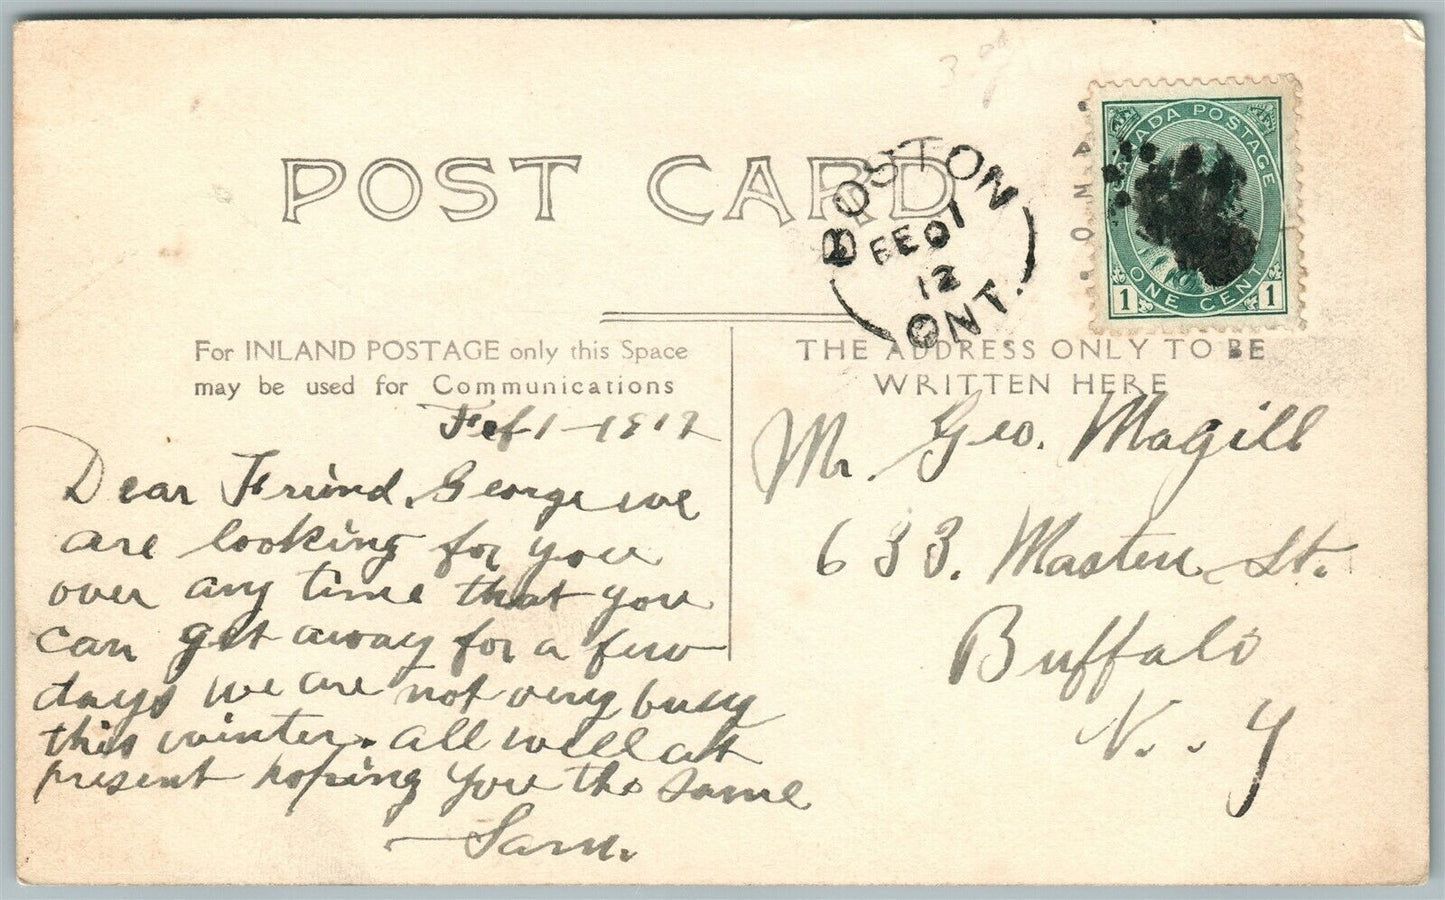 POST CARD
BOSTON
FE 01
12
ONT.
CANADA POSTAGE
1 ONE CENT 1
For INLAND POSTAGE only this Space
may be used for Communications
THE ADDRESS ONLY TO BE
WRITTEN HERE
Feb 1 - 1912
Dear Friend. George we
are looking for you
over any time that you
can get away for a few
days we are not very busy
this winter. all well at
present hoping you the same
Sam.
Mr. Geo. Magill
633. Masten St.
Buffalo
N. . Y